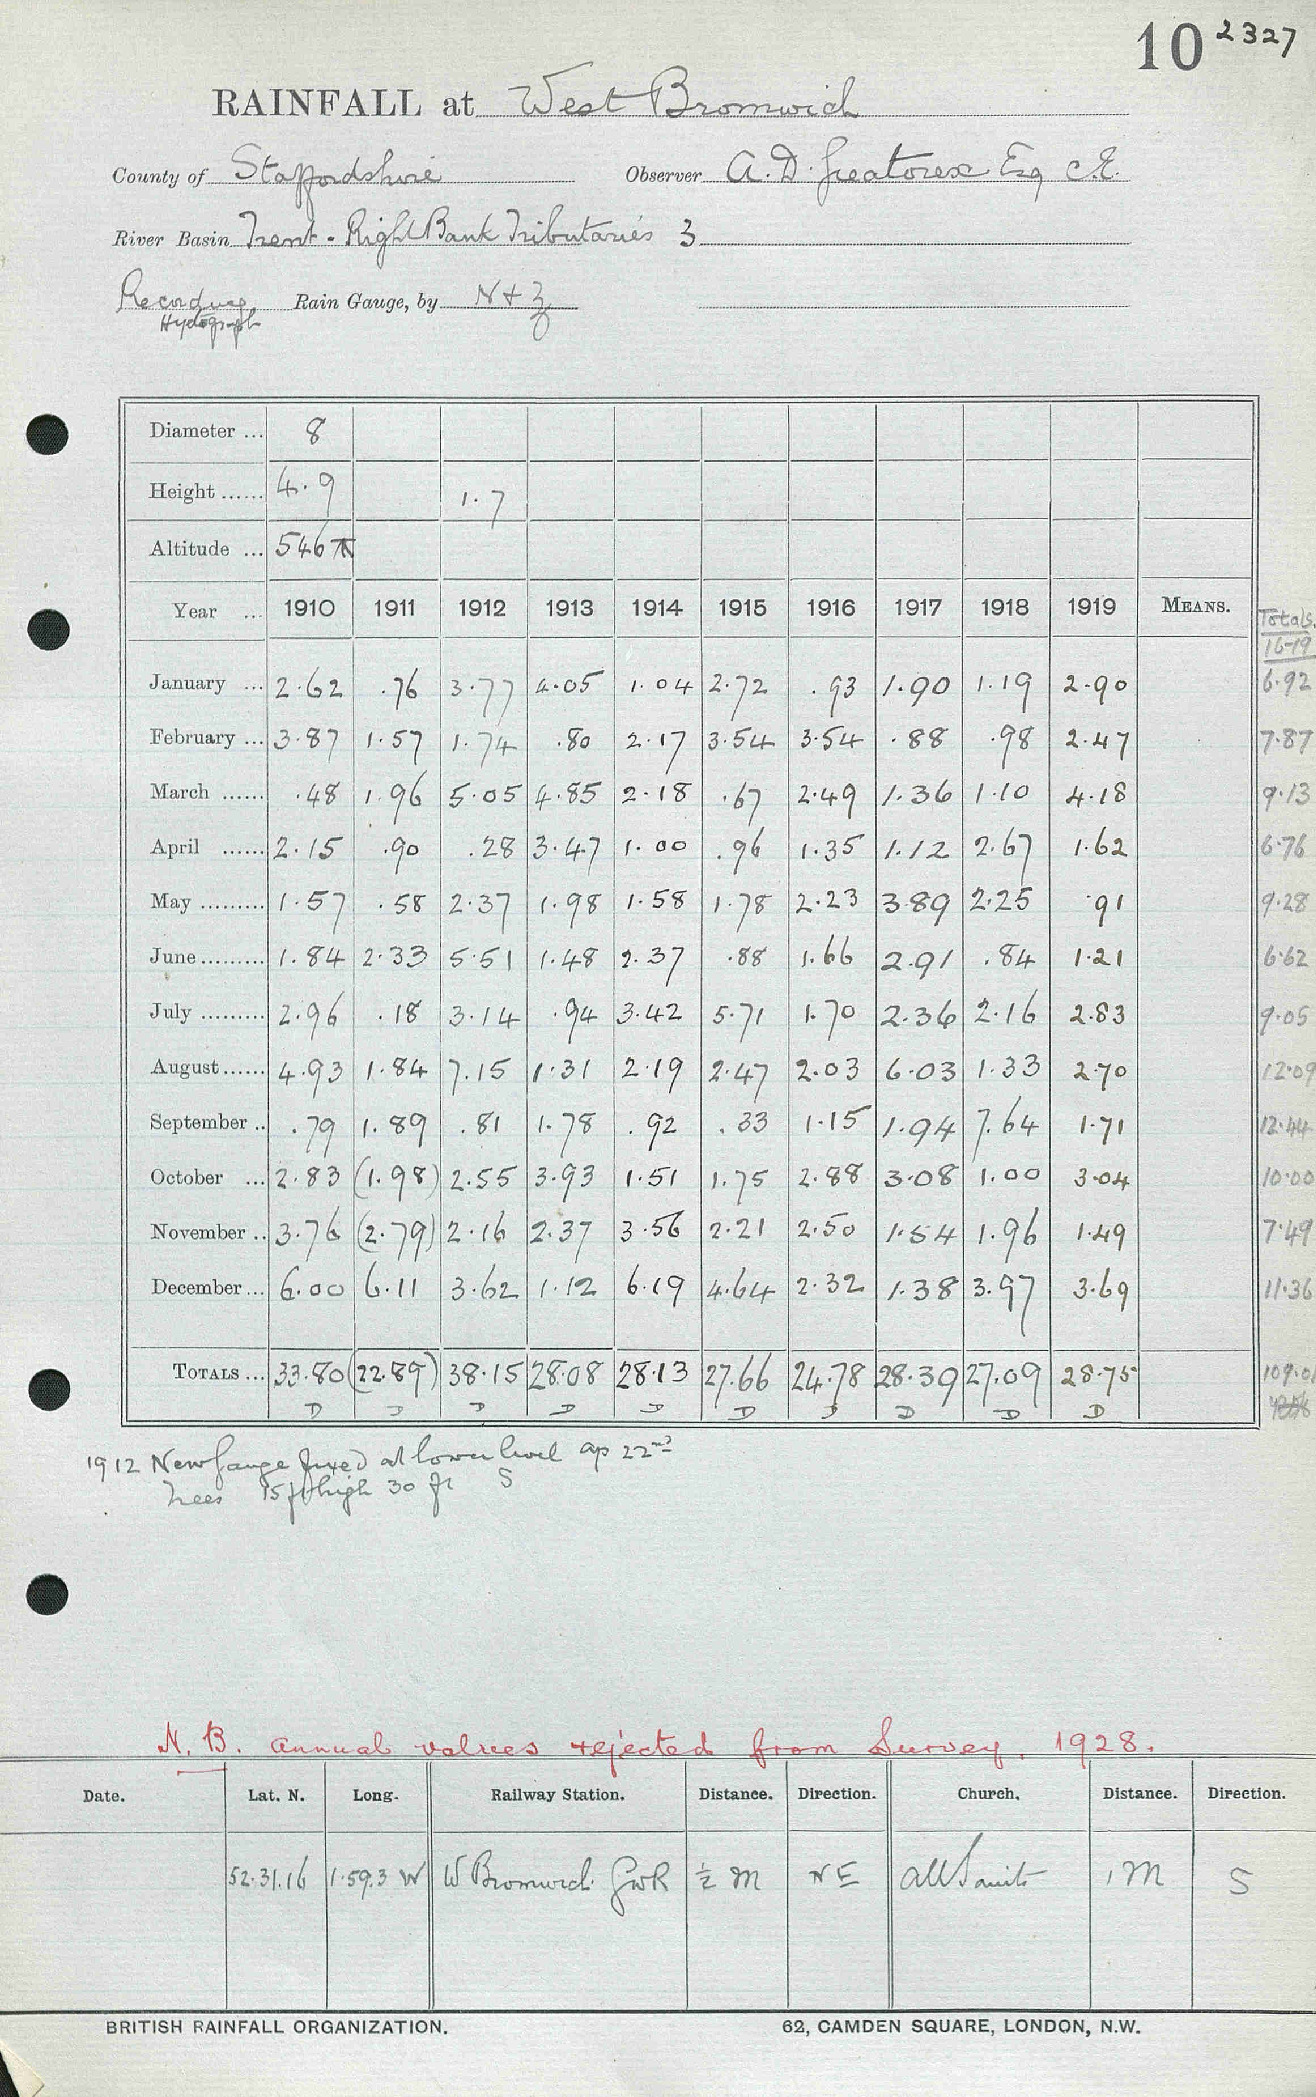 10 2327
RAINFALL at West Bromwich
County of Staffordshire Observer A. D. Greatorex Esq C.E.
River Basin Trent - Right Bank Tributaries 3
Recording Rain Gauge, by N + Z
Hyetograph
Diameter ... 8
Height ...... 4.9 1.7
Altitude ... 546
Year ... 1910 1911 1912 1913 1914 1915 1916 1917 1918 1919 MEANS. Totals
16-19
January ... 2.62 .76 3.77 4.05 1.04 2.72 .93 1.90 1.19 2.90 6.92
February ... 3.87 1.57 1.74 .80 2.17 3.54 3.54 .88 .98 2.47 7.87
March ...... .48 1.96 5.05 4.85 2.18 .67 2.49 1.36 1.10 4.18 9.13
April ...... 2.15 .90 .28 3.47 1.00 .96 1.35 1.12 2.67 1.62 6.76
May ......... 1.57 .58 2.37 1.98 1.58 1.78 2.23 3.89 2.25 .91 9.28
June ......... 1.84 2.33 5.51 1.48 2.37 .88 1.66 2.91 .84 1.21 6.62
July ......... 2.96 .18 3.14 .94 3.42 5.71 1.70 2.36 2.16 2.83 9.05
August ...... 4.93 1.84 7.15 1.31 2.19 2.47 2.03 6.03 1.33 2.70 12.09
September .. .79 1.89 .81 1.78 .92 .33 1.15 1.94 7.64 1.71 12.44
October ... 2.83 (1.98) 2.55 3.93 1.51 1.75 2.88 3.08 1.00 3.04 10.00
November .. 3.76 (2.79) 2.16 2.37 3.56 2.21 2.50 1.54 1.96 1.49 7.49
December ... 6.00 6.11 3.62 1.12 6.19 4.64 2.32 1.38 3.97 3.69 11.36
TOTALS ... 33.80 (22.89) 38.15 28.08 28.13 27.66 24.78 28.39 27.09 28.75 109.01
D D D D D D D D D D
1912 New Gauge fixed at lower level ap 22nd
Trees 15 ft high 30 ft S
N.B. Annual values rejected from Survey. 1928.
Date. Lat. N. Long. Railway Station. Distance. Direction. Church. Distance. Direction.
52.31.16 1.59.3 W W Bromwich GWR ½ M NE All Saints 1 M S
BRITISH RAINFALL ORGANIZATION. 62, CAMDEN SQUARE, LONDON, N.W.